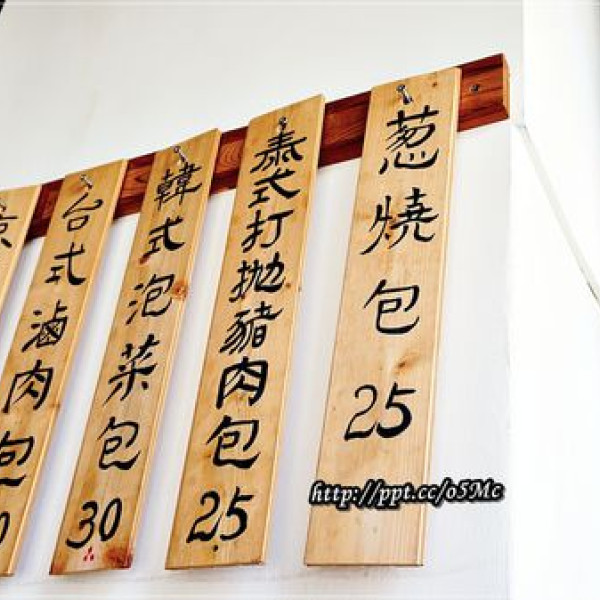 葱燒包 25
泰式打拋豬肉包 25
韓式泡菜包 30
台式滷肉包
http://ppt.cc/o5Mc